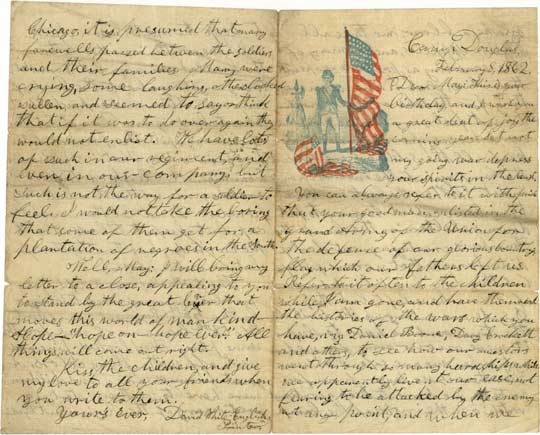 Camp Douglas,
February 8, 1862.
Dear May: This is your
birthday, and I wish you
a great deal of joy the
coming year. Let not
my going war depress
your spirits in the least.
You can always refer to it with pride
that your good man enlisted in the
grand Army of the Union for
the defense of our glorious country's
flag which our Fathers left us.
Refer to it often to the children
while I am gone, and have them read
the histories of the wars which you
have, viz Daniel Boone, Davy Crockett
and others, to see how our ancestors
went through so many hardships while
we apparently live at our ease, not
fearing to be attacked by the enemy
at any point, and when we
Chicago, it is presumed that many
farewells passed between the soldiers
and their families. Many were
crying, some laughing, others looked
sullen, and seemed to say or think
that if it was to do over again they
would not enlist. We have lots
of such in our regiment, and
even in our company, but
such is not the way for a soldier to
feel. I would not take the
that some of them get for a
plantation of negroes in the South.
Well, May: I will bring my
letter to a close, appealing to you
to stand by the great that
moves this world of man kind
Hope - "hope on - hope ever." All
things will come out right.
Kiss the children, and give
my love to all your friends when
you write to them.
Yours Ever,
David White English